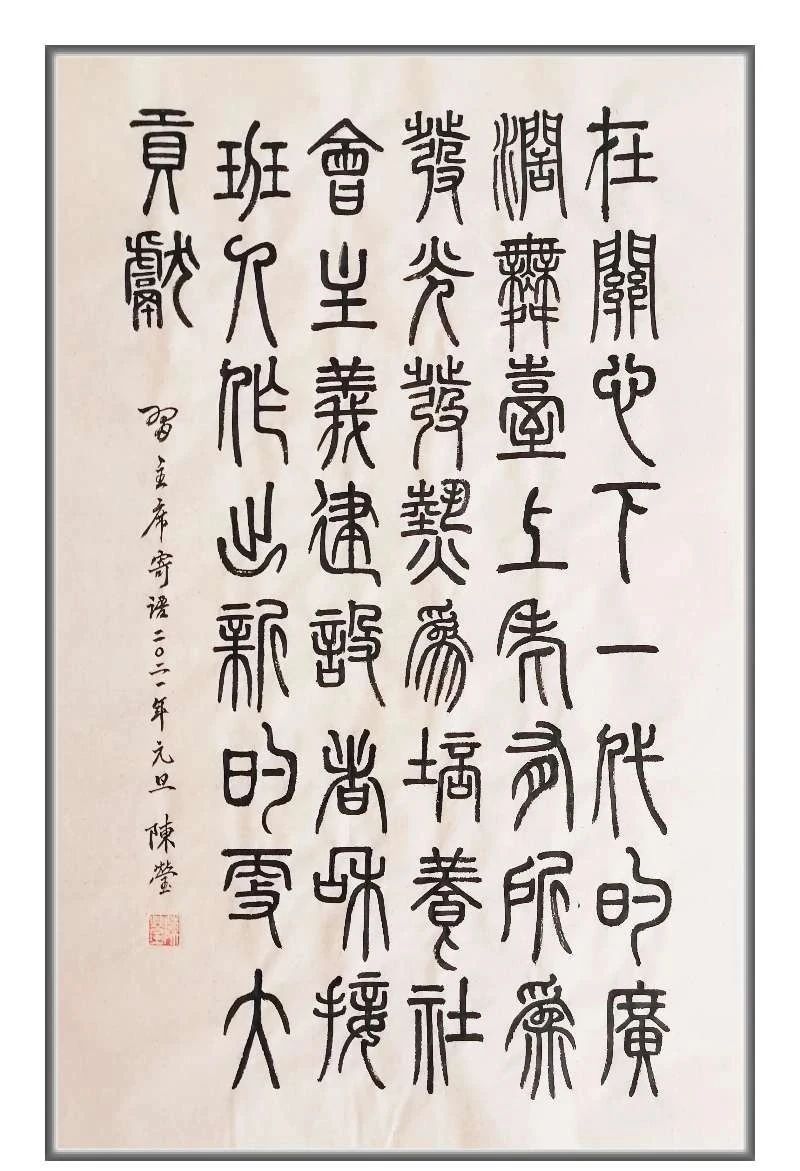 在關心下一代的廣
濶舞臺上老有所爲
發光發熱爲培養社
會主義建設者和接
班人作出新的更大
貢獻
習主席寄語二〇二一年元旦 陳瑩